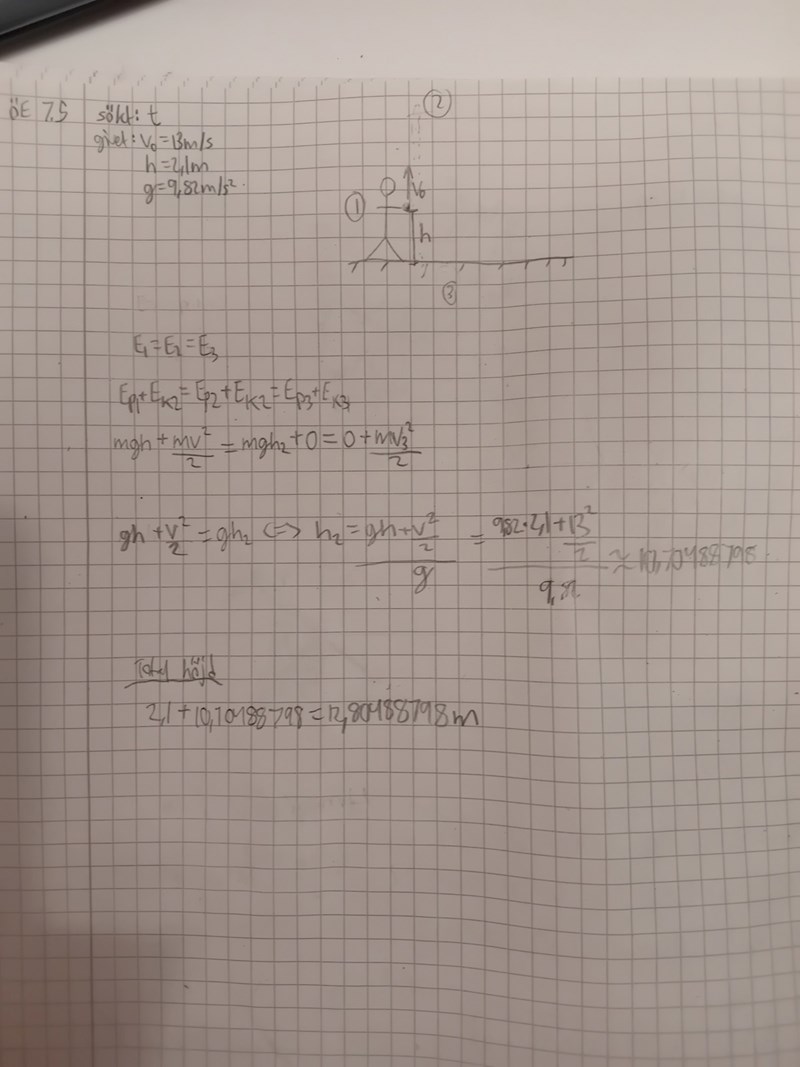 ÖE 7.5 sökt: t
givet: v₀ = 13m/s
h = 2,1m
g = 9,82m/s²
②
①
v₀
h
③
E₁ = E₂ = E₃
Ep1 + EK2 = Ep2 + EK2 = Ep3 + EK3
mgh + mv²/2 = mgh₂ + 0 = 0 + mv₃²/2
gh + v²/2 = gh₂ <=> h₂ = (gh + v²/2)/g = (9,82·2,1 + 13²/2)/9,82 ≈ 10,70488798
Total höjd
2,1 + 10,70488798 = 12,80488798m